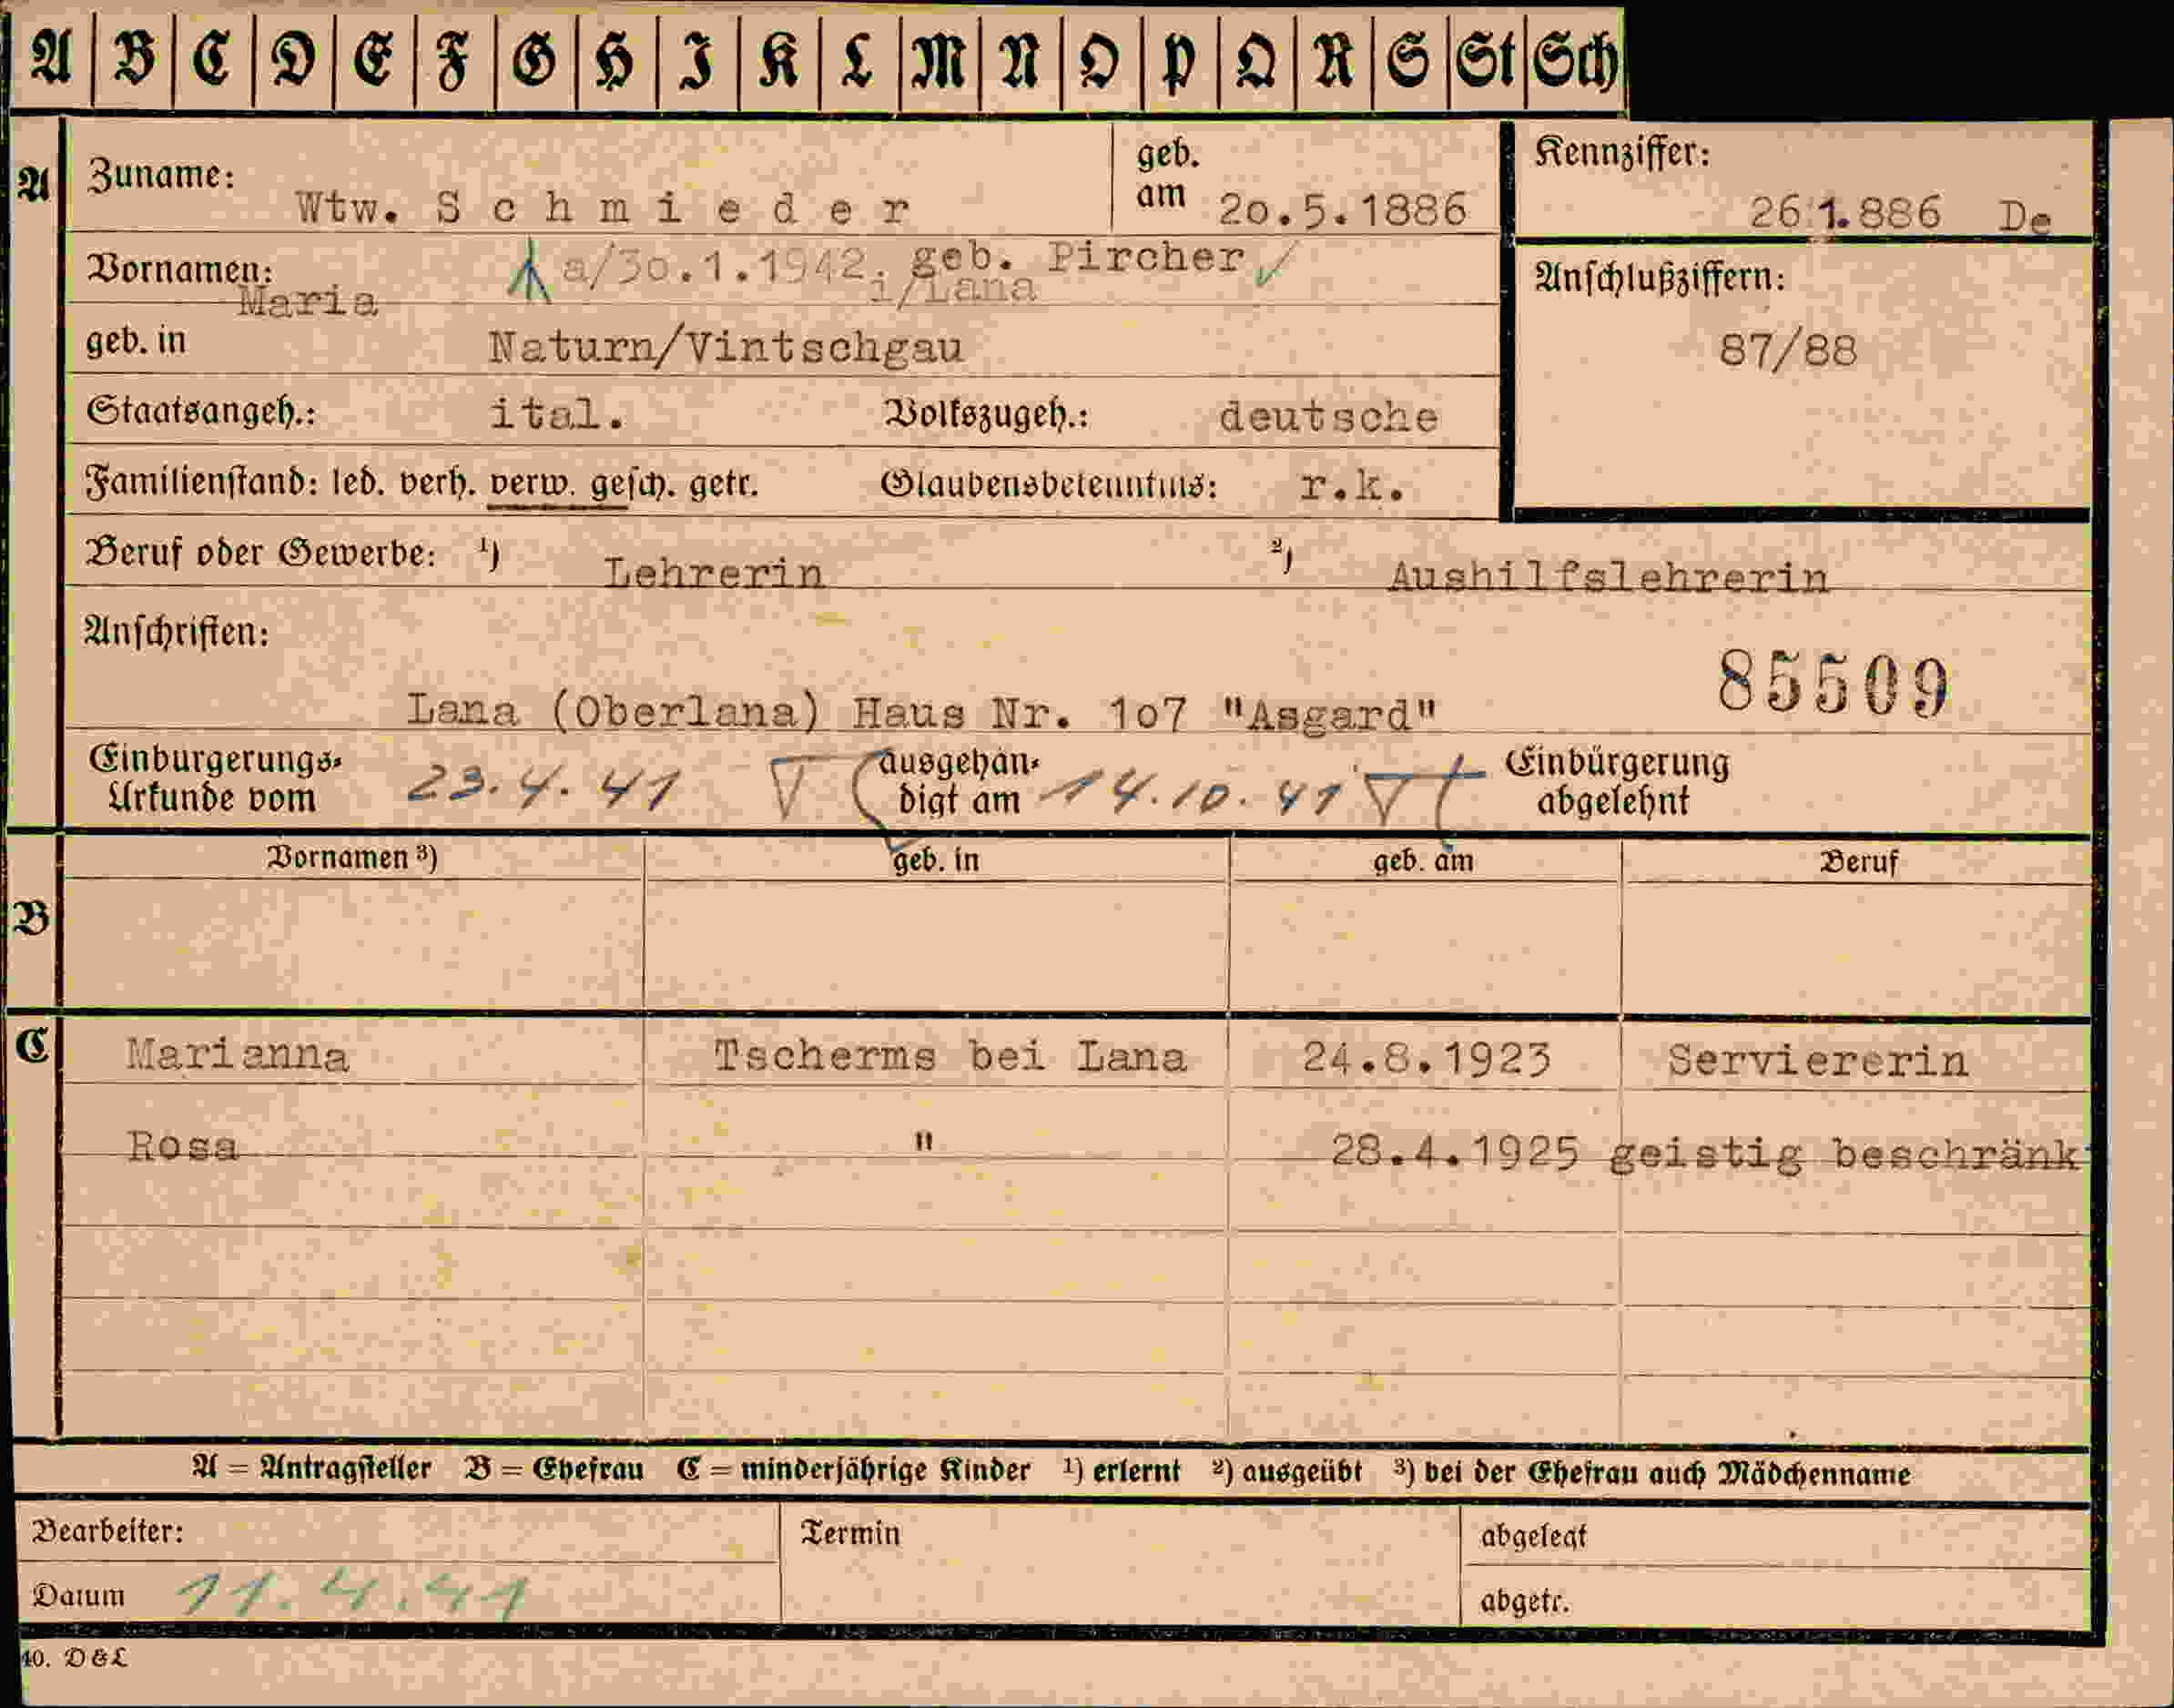 A B C D E F G H I K L M N O P Q R S St Sch
A
Zuname: Wtw. S c h m i e d e r
geb. am 20.5.1886
Kennziffer: 261.886 De
Vornamen: Maria
a/30.1.1942. geb. Pircher ✓
i/Lana
Anschlußziffern:
87/88
geb. in Naturn/Vintschgau
Staatsangeh.: ital. Volkszugeh.: deutsche
Familienstand: led. verh. verw. gesch. getr. Glaubensbekenntnis: r.k.
Beruf oder Gewerbe: 1) Lehrerin 2) Aushilfslehrerin
Anschriften:
85509
Lana (Oberlana) Haus Nr. 107 "Asgard"
Einbürgerungs-Urkunde vom 23.4.41 ausgehändigt am 14.10.41 Einbürgerung abgelehnt
Vornamen 3) geb. in geb. am Beruf
B
C
Marianna Tscherms bei Lana 24.8.1923 Serviererin
Rosa " 28.4.1925 geistig beschränkt
A = Antragsteller B = Ehefrau C = minderjährige Kinder 1) erlernt 2) ausgeübt 3) bei der Ehefrau auch Mädchenname
Bearbeiter: Termin abgelegt
Datum 11.4.41 abgetr.
40. D&L